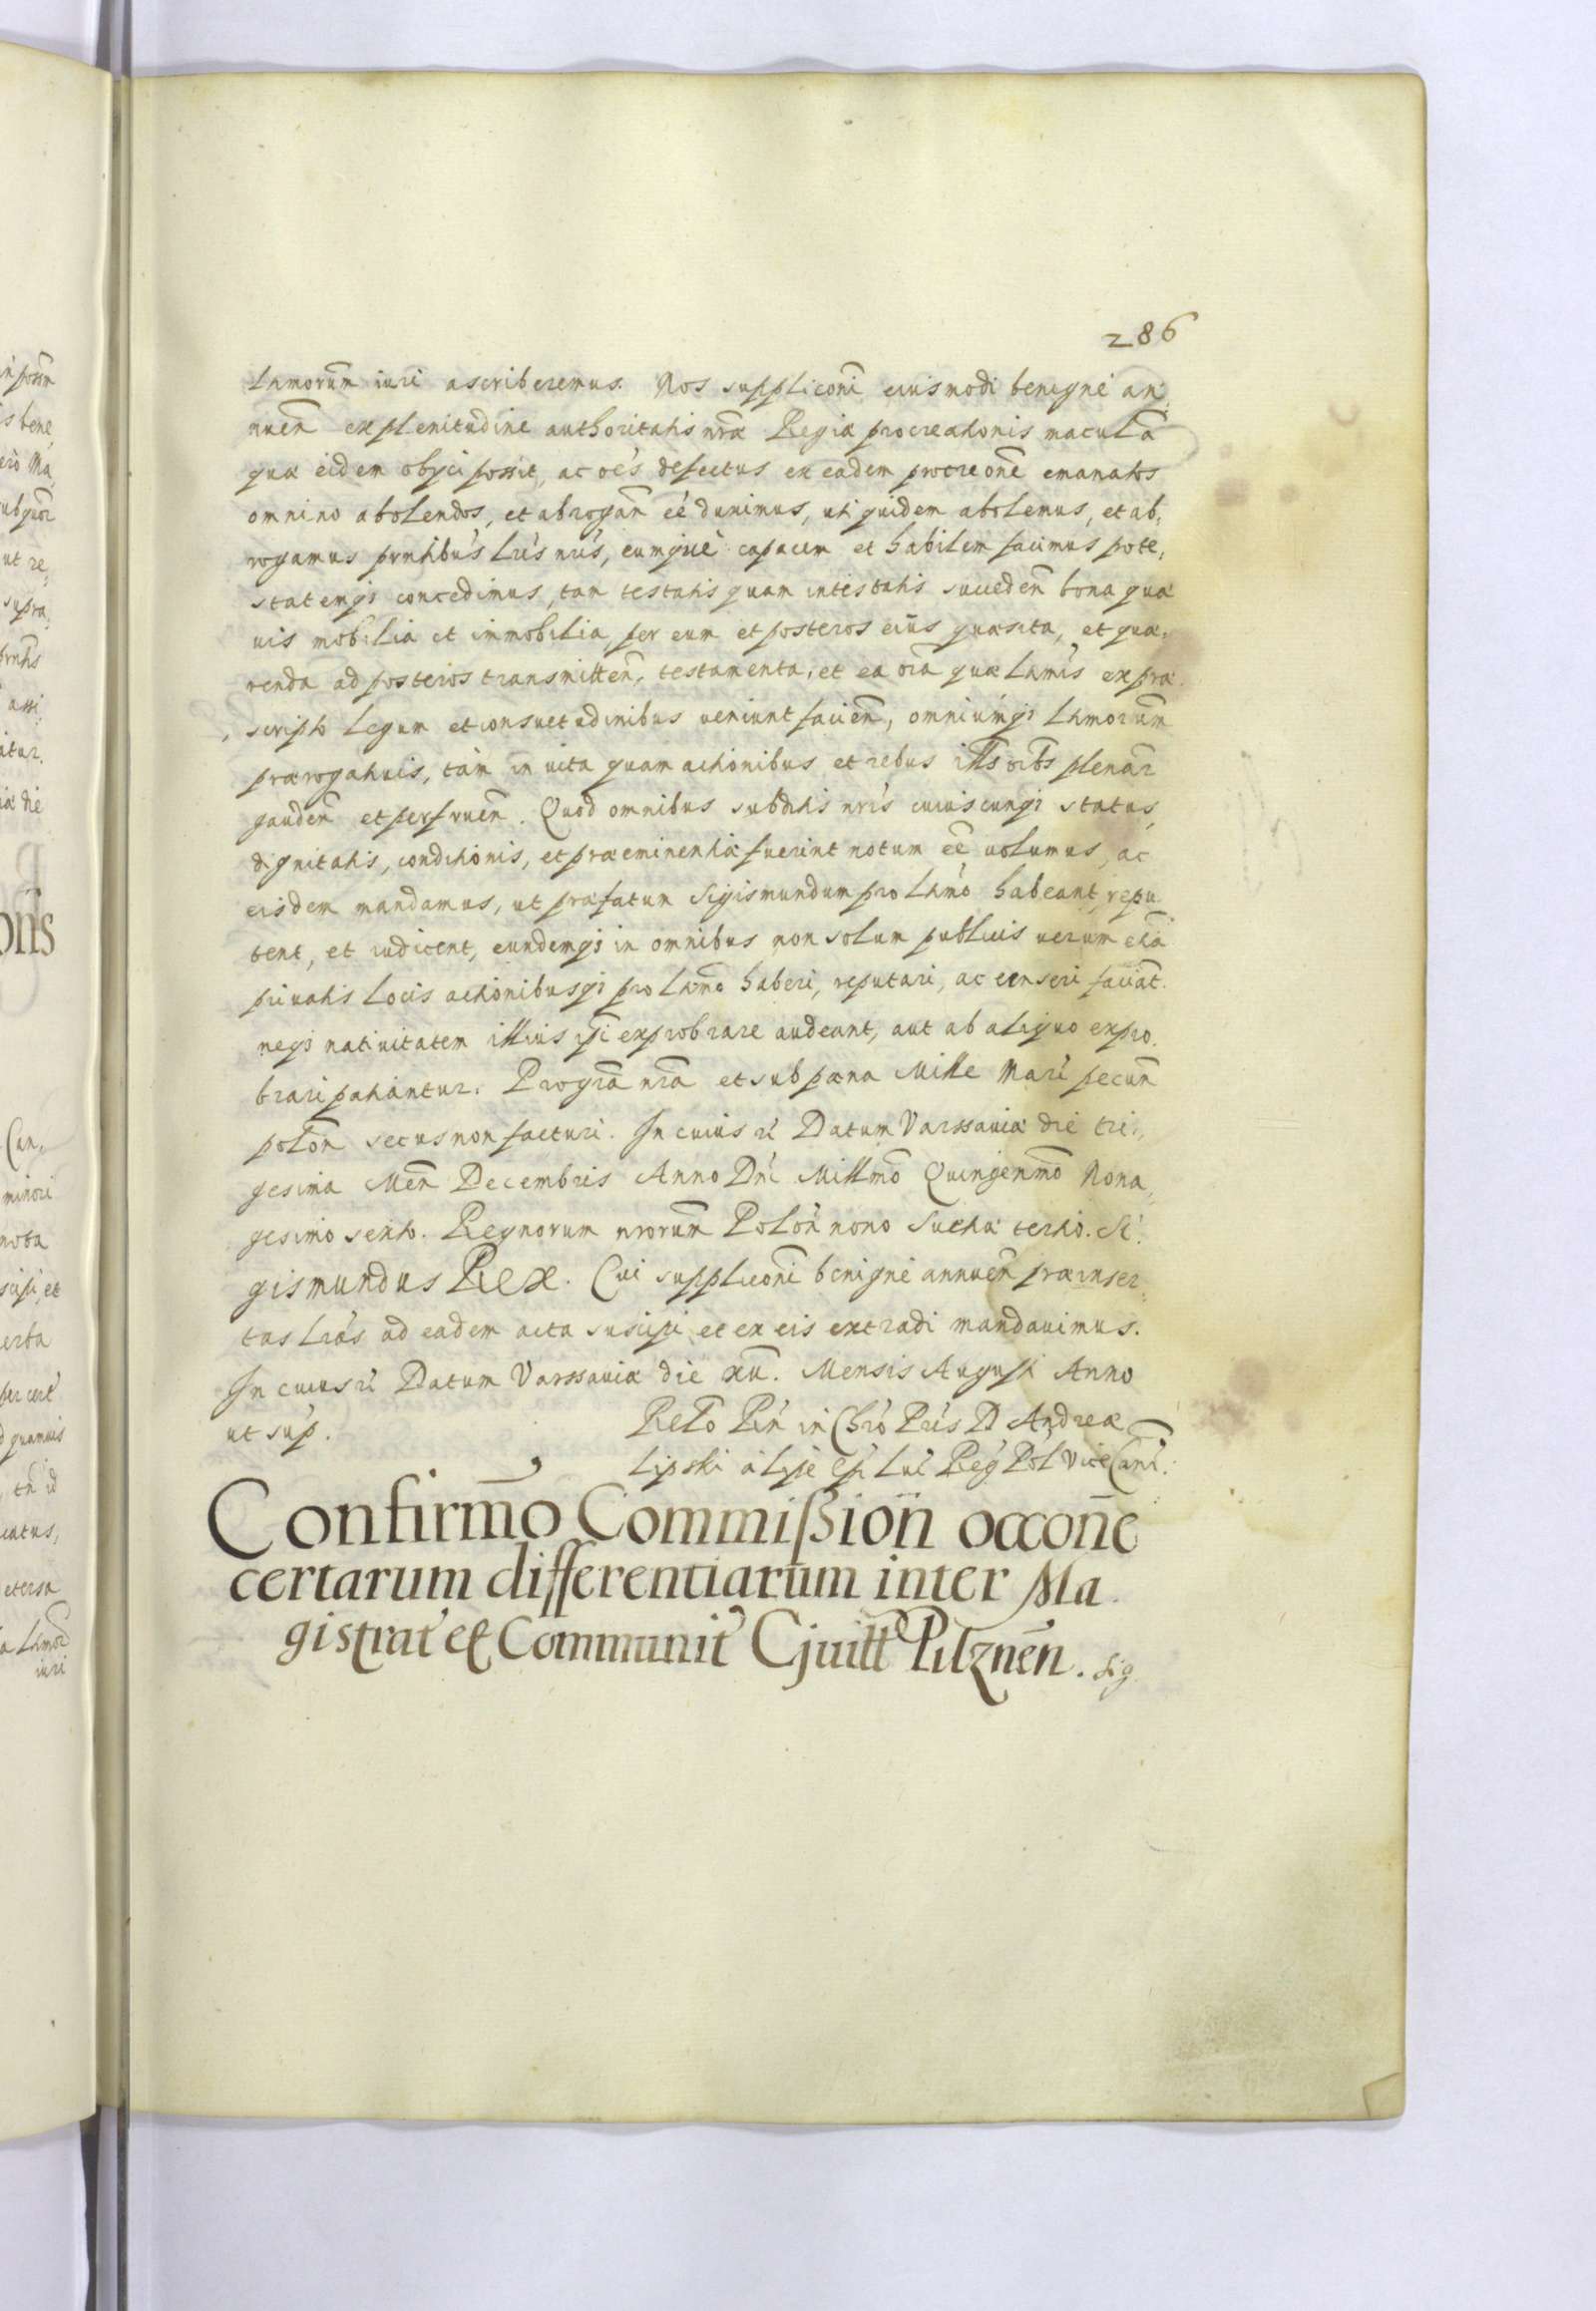 286
Lƚmorum̃ iuri ascriberemus. Nos suppliconi eiusmodi benigne an,
nueñ ex plenitudine authoritatis nr̃æ Regiæ procreationis maculã
quæ eidem obijci possit, ac oe͂s defectus ex eadem procreone͂ emanatos
omnino abolendos, et abrogan͂ eé duximus, uti quidem abolemus, et ab,
rogamus prntibus lris nris, eumque capacem et habilem facimus pote,
statemqз concedimus, tam testatis quam intestatis succeden͂ bona quæ
uis mobilia et immobilia, per eum et posteros eius quæsita, et quæ,
renda ad posteros transmitten͂, testamenta, et ea oı͂a quæ Lƚmis ex præ
scripto legum et consuetudinibus ueniunt facien͂, omniumqз Lƚmorum̃
prærogatiuis, tàm in uita quam actionibus et rebus illis͂ oı͂bs plenar͂
gauden͂ et perfruen͂. Quod omnibus subditis nris cuiuscunqз status,
dignitatis, conditionis, et præeminentiæ fuerint notum ee͂ uolumus, ac
eisdem mandamus, ut præfatum Sigismundum pro Lƚmo habeant, repu
tent, et iudicent, eundemqз in omnibus non solum publicis uerum etiã
priuatis locis actionibusqз pro Lƚmo haberi, reputari, ac censeri faciãt.
neqз natiuitatem illius ipsi exprobrare audeant, aut ab aliquo expro.
brari patiantur. Pro grã nrã et sub pœna Mille Mar͂ pecun͂
polon͂ secus non facturi. In cuius ri͂ Datum Varssauiæ die tri,
gesima Men͂ Decembris Anno Dni͂ Millmo͂ Quingenmo͂ Nona,
gesimo sexto. Regnorum nrorum̃ Polon͂ nono Suetiæ tertio. Si,
gismundus Rex. Cui suppliconi͂ benigne annuen͂ præinser,
tas Lrãs ad eadem acta suscipi et ex eis extradi mandauimus.
In cuius ri͂ Datum Varssauiæ die xu͂. Mensis Augusti Anno
ut sup͂.
Relo͂ Rn͂ in Chro͂ Pris͂ D Andreæ
Lipski à Lipie Epi͂ Luc͂ Reg͂ Pol͂ ViceCanc͂.
Confirmo͂ Commißion͂ occone͂
certarum differentiarum inter Ma
gistrat͂ et Communit͂ Cjuitt͂ Pilznen͂. Sig